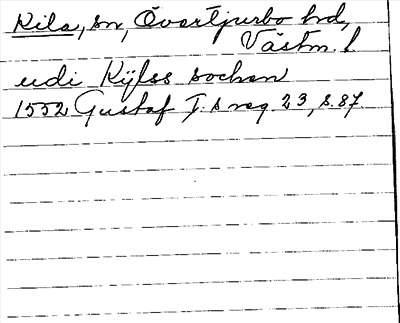 Kila, sn, Övertjurbo hd,
Västm. l.
udi Kijlss sochen
1552 Gustaf I:s reg. 23, s. 87.